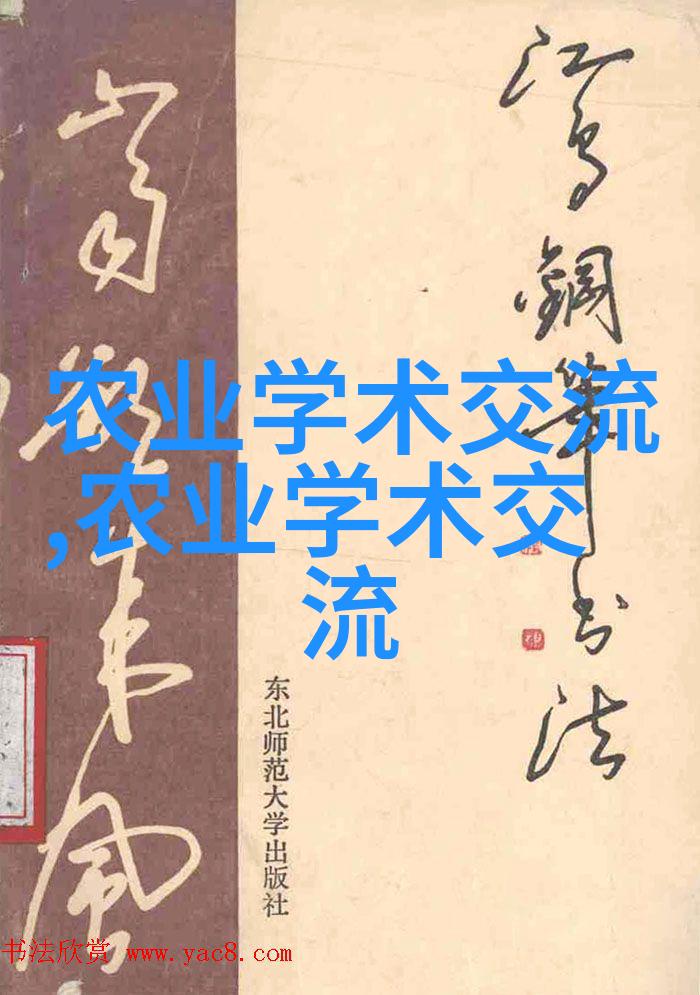 鋼筆书法
农业学术交流
,农业学术交
流
东北师范大学出版社
书法欣赏 www.yac8.com